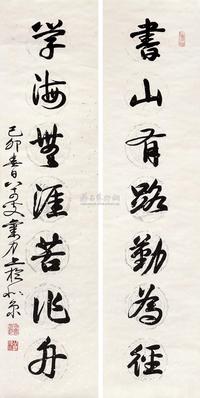 書山有路勤為徑
学海無涯苦作舟
己卯春日